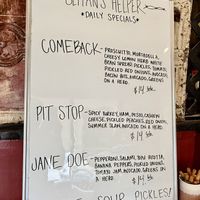 HELPER
*DAILY SPECIALS*
COMEBACK- PROSCIUTTO, MORTADELLA,
CHEESY LEMON HERB WHITE
BEAN SPREAD, PICKLES, TOMATO,
PICKLED RED ONIONS, AVOCADO,
BACON BITS, AVOCADO, GREENS
ON A HERO.
$14
PIT STOP- SPICY TURKEY, HAM, PESTO, CASHEW
CHEESE, PICKLED PEACHES, RED ONION,
SUMMER SLAW, AVOCADO ON A HERO.
$14
JANE DOE- PEPPERONI, SALAMI, RICOTTA,
BANANA PEPPERS, PICKLED ONIONS,
TOMATO JAM, AVOCADO, GREENS ON
A HERO.
$14
SOUR PICKLES!